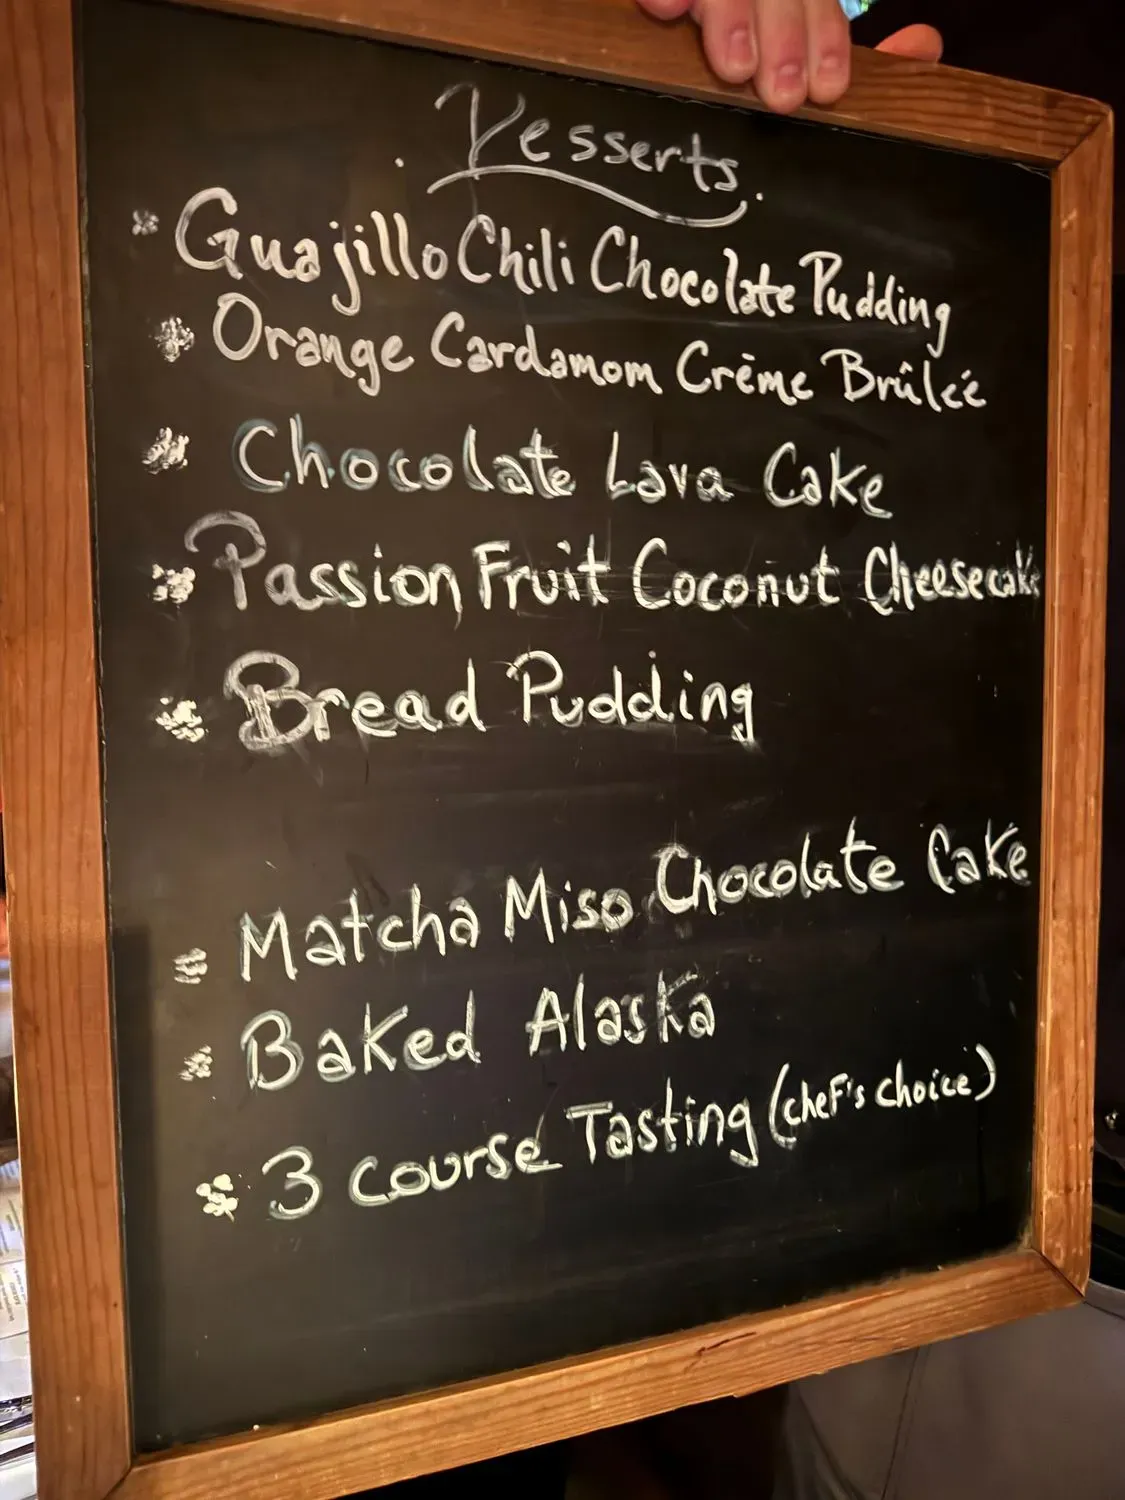 Desserts.
Guajillo Chili Chocolate Pudding
Orange Cardamom Crème Brûlée
Chocolate Lava Cake
Passion Fruit Coconut Cheesecake
Bread Pudding
Matcha Miso Chocolate Cake
Baked Alaska
3 course Tasting (chef's choice)